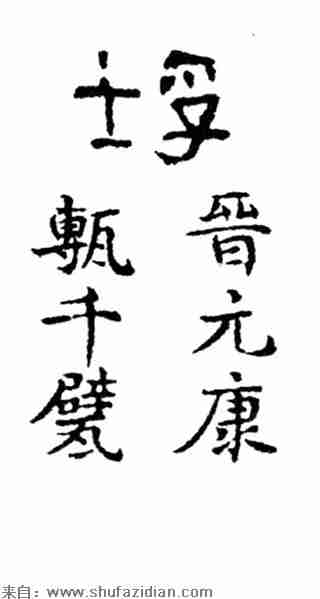 垺
晉元康
甎千甓
来自：www.shufazidian.com